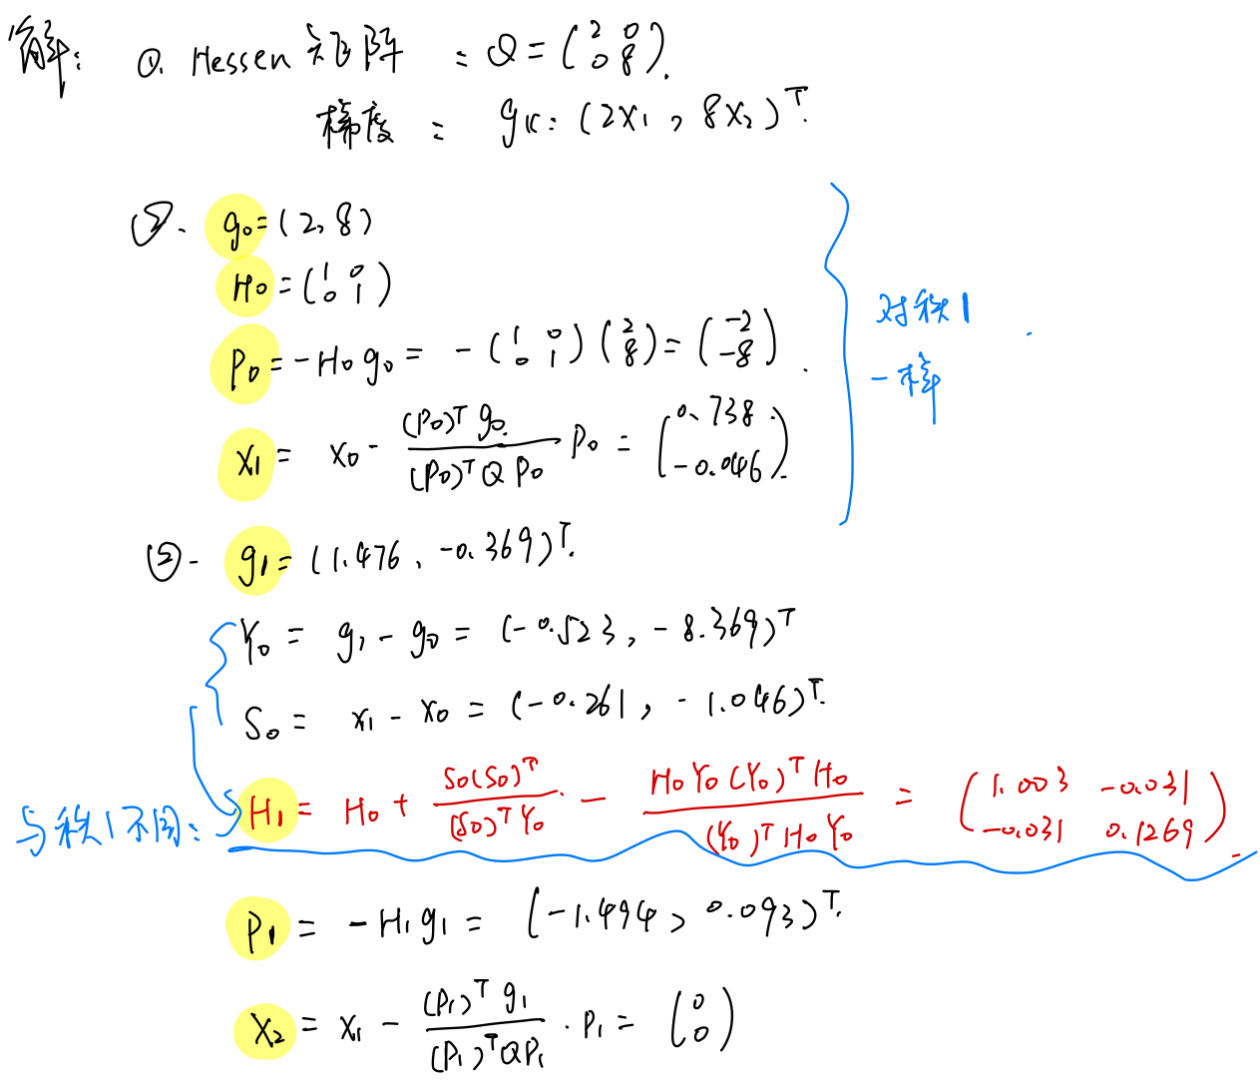 解: ①. Hessen 矩阵 : Q = (2 0 0 8).
梯度 : gk: (2x₁, 8x₂)ᵀ.
②. g₀ = (2, 8)
H₀ = (1 0 0 1)
P₀ = -H₀g₀ = -(1 0 0 1)(2 8) = (-2 -8).
x₁ = x₀ - (P₀)ᵀg₀ / (P₀)ᵀQP₀ P₀ = (0.738 -0.046).
对秩1
一样
②. g₁ = (1.476, -0.369)ᵀ.
Y₀ = g₁ - g₀ = (-0.523, -8.369)ᵀ
S₀ = x₁ - x₀ = (-0.261, -1.046)ᵀ.
与秩1不同: H₁ = H₀ + S₀(S₀)ᵀ / (S₀)ᵀY₀ - H₀Y₀(Y₀)ᵀH₀ / (Y₀)ᵀH₀Y₀ = (1.003 -0.031 -0.031 0.1269).
P₁ = -H₁g₁ = (-1.494, 0.093)ᵀ.
X₂ = x₁ - (P₁)ᵀg₁ / (P₁)ᵀQP₁ · P₁ = (0 0)